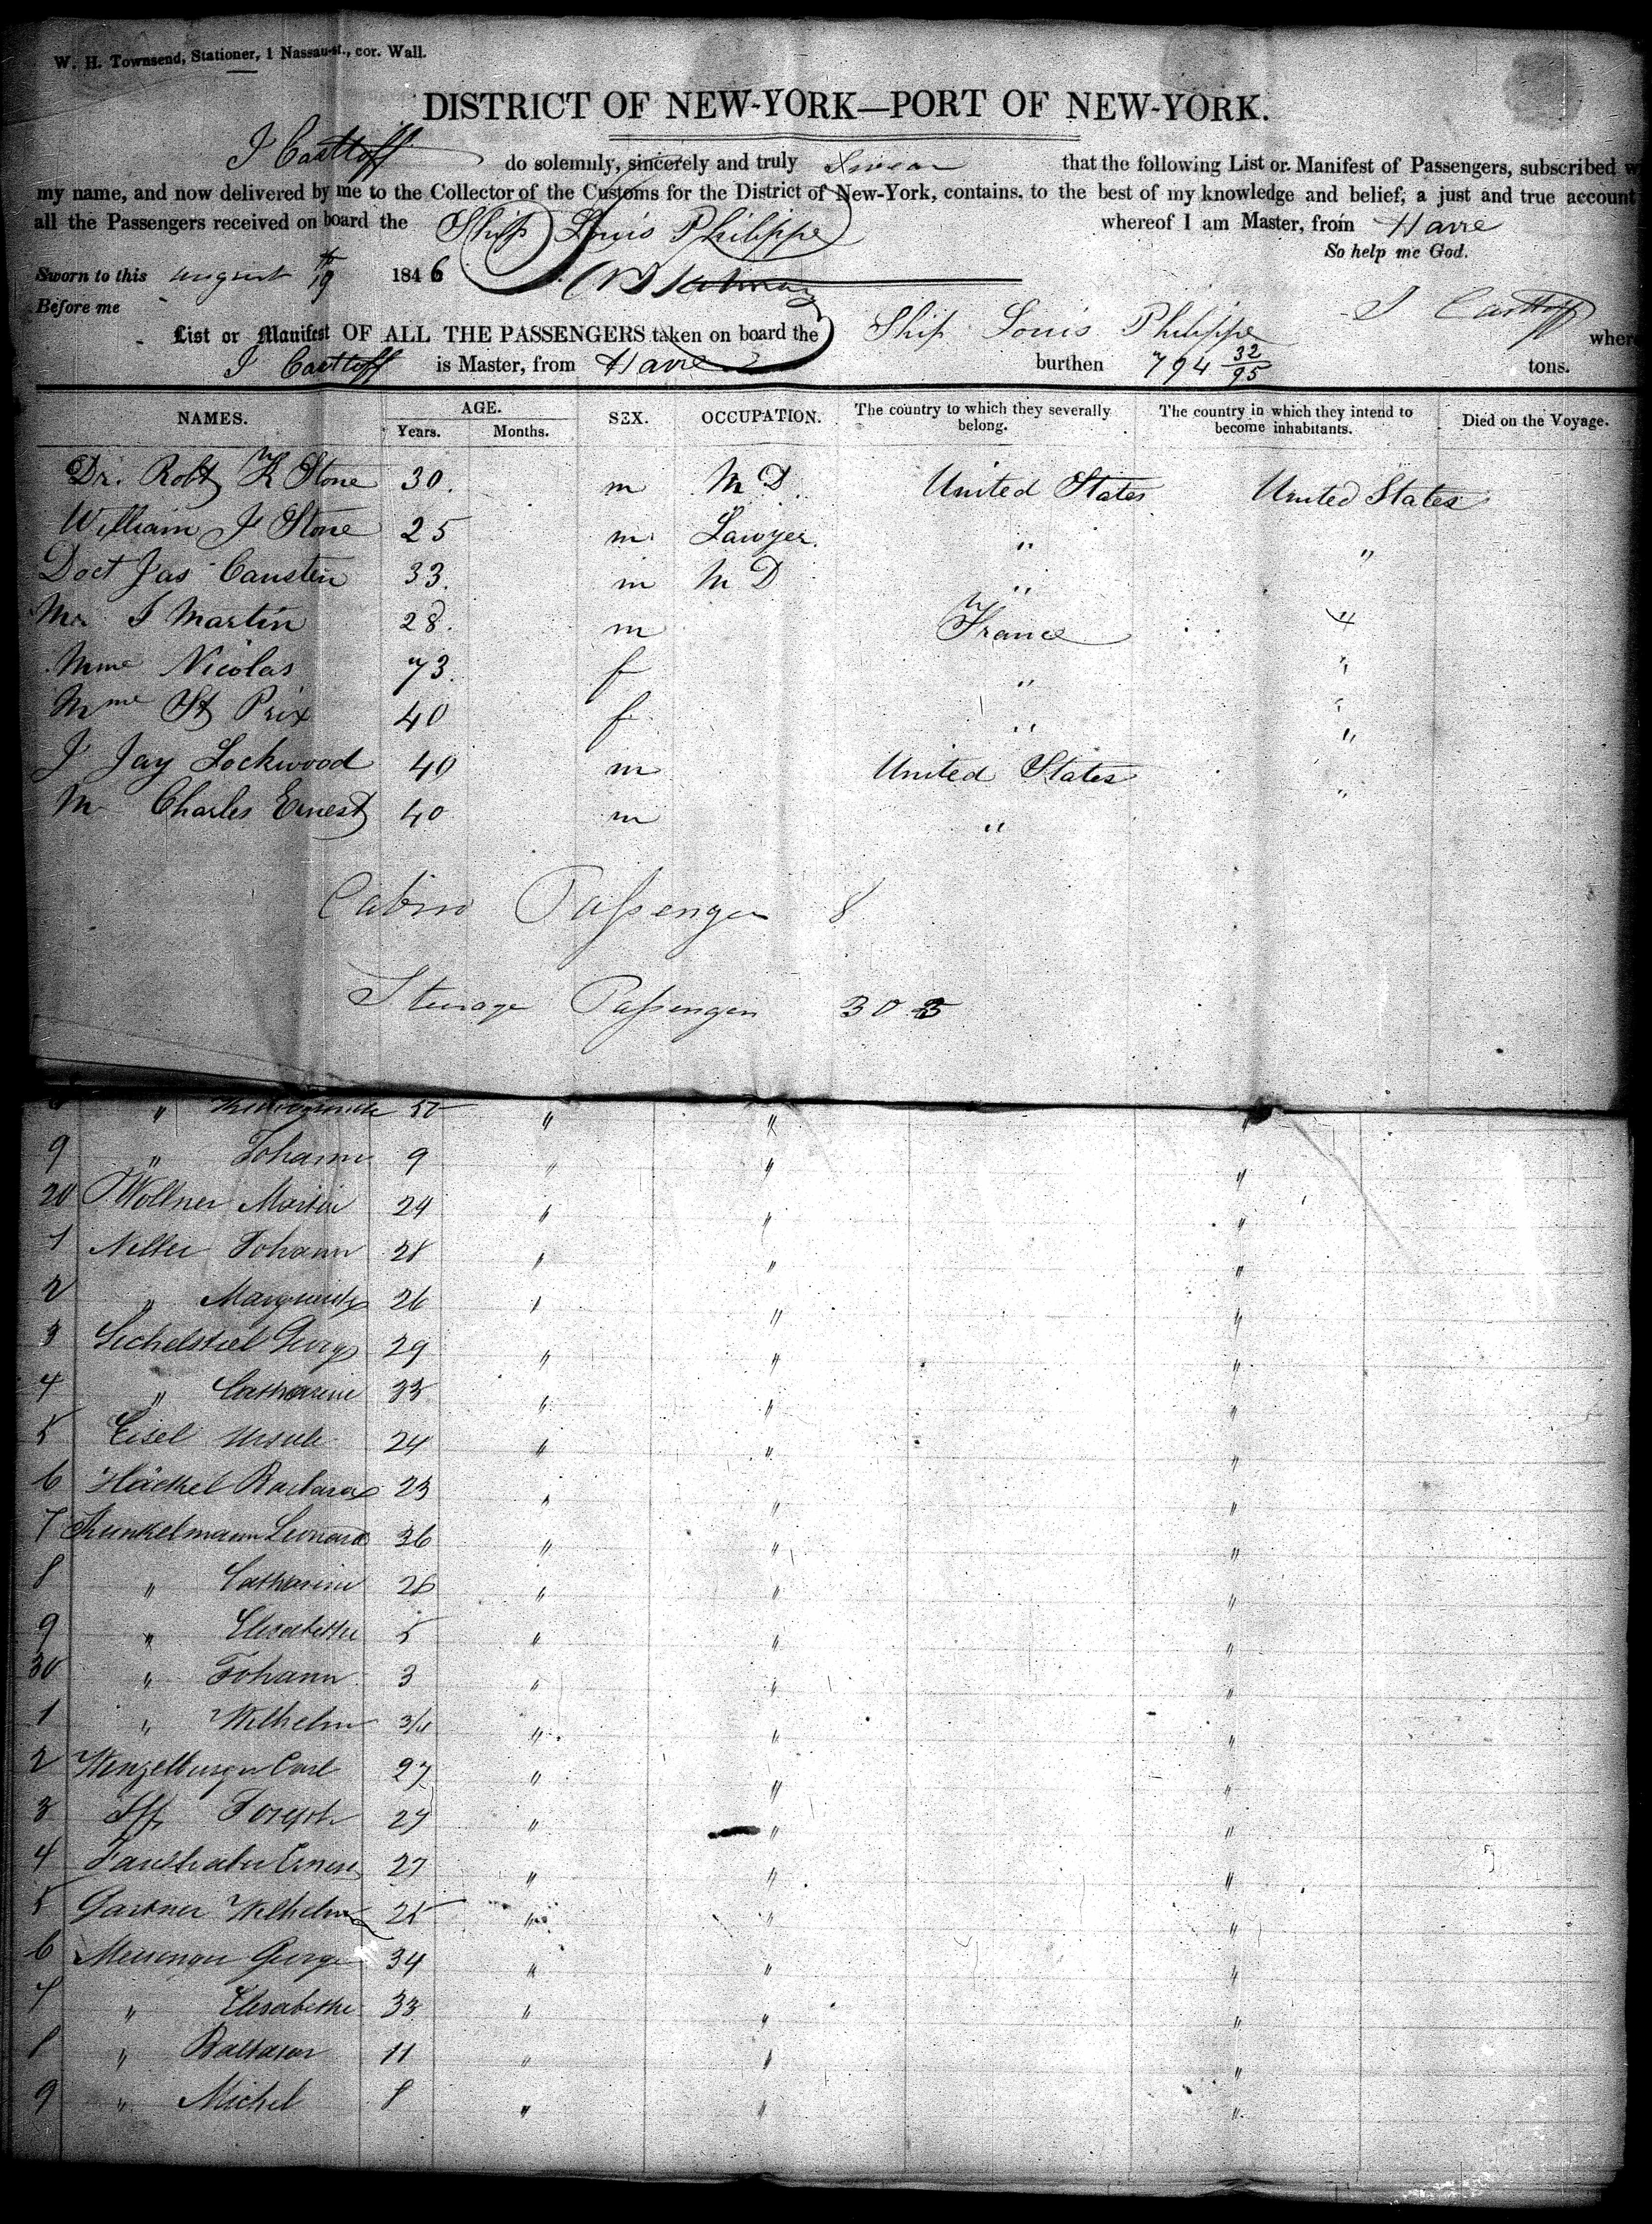 W. H. Townsend, Stationer, 1 Nassau-st., cor. Wall.
DISTRICT OF NEW-YORK—PORT OF NEW-YORK.
I Casttoff do solemnly, sincerely and truly Swear that the following List or Manifest of Passengers, subscribed w
my name, and now delivered by me to the Collector of the Customs for the District of New-York, contains, to the best of my knowledge and belief, a just and true account
all the Passengers received on board the Ship Louis Philippe whereof I am Master, from Havre
So help me God.
Sworn to this august 19th 1846
Before me
I Casttoff
List or Manifest OF ALL THE PASSENGERS taken on board the Ship Louis Philippe wher
I Casttoff is Master, from Havre burthen 794 32/95 tons.
NAMES. AGE. Years. Months. SEX. OCCUPATION. The country to which they severally belong. The country in which they intend to become inhabitants. Died on the Voyage.
Dr. Robt K Stone 30. m M D. United States United States
William J Stone 25 m. Lawyer. " "
Doct Jas Causten 33. m M D "
Mr J Martin 28. m France "
Mme Nicolas 73. f " "
Mme St Prix 40 f " "
J Jay Lockwood 40 m United States
Mr Charles Ernest 40 m " "
Cabin Passenger 8
Steerage Passengers 30
" 50 " " "
9 " Johann 9 " " "
20 Wollner Martin 24 " " "
1 Johann 28 " " "
2 " Marguerite 26 " " "
3 Sichelstiel Georg 29 " " "
4 " Catharine 33 " " "
5 Eisel Ursule 24 " " "
6 Häckel Barbara 23 " " "
7 Kunkelmann Leonard 36 " " "
8 " Catharine 26 " " "
9 " Elisabethe 5 " " "
30 " Johann 3 " " "
1 " Wilhelm 3/4 " " "
2 Wenzelburger Carl 27 " " "
3 Iff Joseph 27 " " "
4 Ernest 27 " " "
5 Gartner Wilhelm 25 " " "
6 Messenger George 34 " " "
7 " Elisabethe 33 " " "
8 " Baltasar 11 " " "
9 " Michel 8 " " "